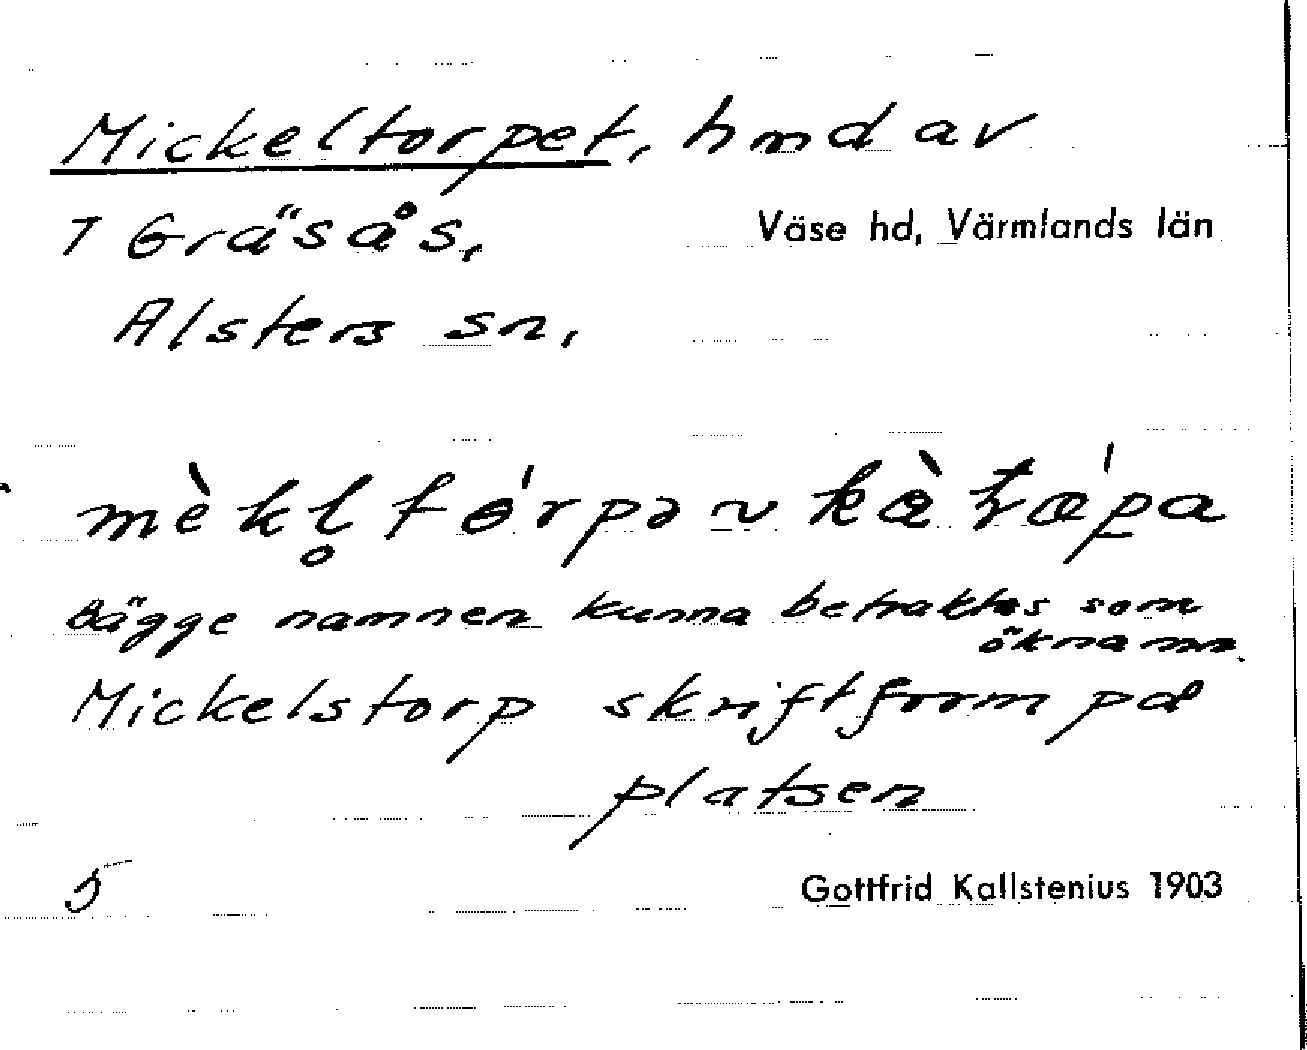 Mickeltorpet, hmd av
7 Gräsås, Väse hd, Värmlands län
Alsters sn,
mèkl̥tórpə ~
bägge namnen kunna betraktas som
öknamn.
Mickelstorp skriftform på
platsen
5 Gottfrid Kallstenius 1903